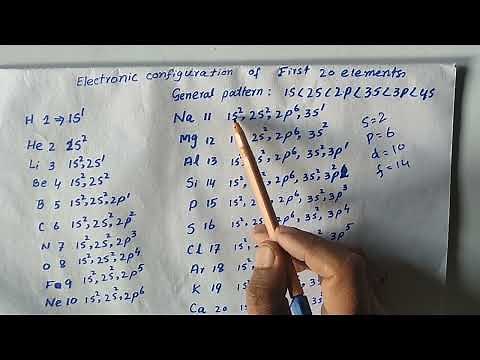 Electronic configuration of First 20 elements
General pattern: 1S<2S<2P<3S<3P<4S
H 1 ⇒ 1S¹
He 2 1S²
Li 3 1S², 2S¹
Be 4 1S², 2S²
B 5 1S², 2S², 2P¹
C 6 1S², 2S², 2P²
N 7 1S², 2S², 2P³
O 8 1S², 2S², 2P⁴
F 9 1S², 2S², 2P⁵
Ne 10 1S², 2S², 2P⁶
Na 11 1S², 2S², 2P⁶, 3S¹
Mg 12 2S², 2P⁶, 3S²
Al 13 1S², 2S², 2P⁶, 3S², 3P¹
Si 14 1S², 2S², 2P⁶, 3S², 3P²
P 15 1S², 2S², 2P⁶, 3S², 3P³
S 16 1S², 2S², 2P⁶, 3S², 3P⁴
Cl 17 1S², 2S², 3P⁵
Ar 18 1S², 2S²
K 19 1S², 2S
Ca 20 1S², 2S
S=2
P=6
d=10
f=14